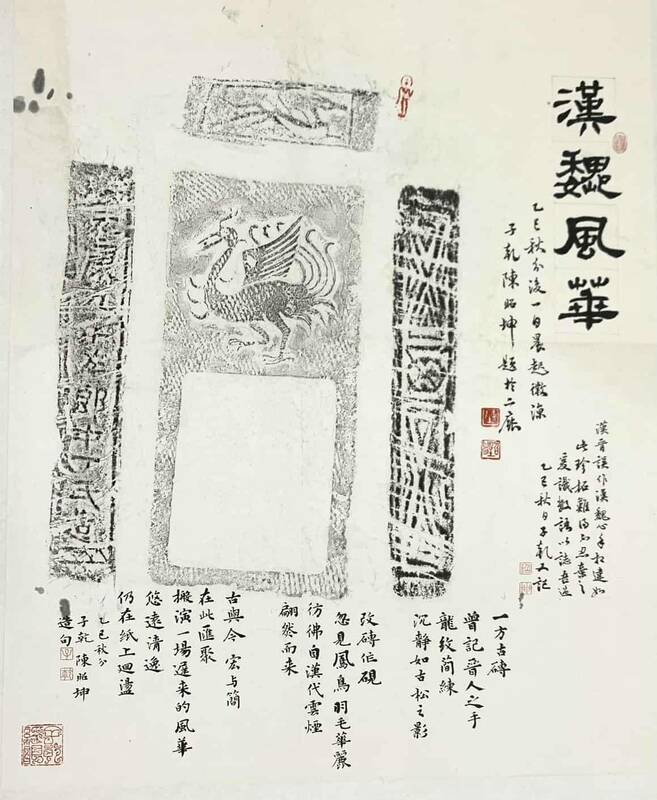 漢魏風華
乙巳秋分後一日晨起微涼
子乾陳昭坤題於二磨
漢晉誤作漢魏心手相違如
此珍拓難得不忍棄之
爰識數語以誌吾過
乙巳秋日子乾又記
一方古磚
曾記晉人之手
龍紋簡練
沉靜如古松之影
改磚作硯
忽見鳳鳥羽毛華麗
彷彿自漢代雲煙
翩然而来
古與今 宏与簡
在此匯聚
搬演一場遲来的風華
悠遠清逸
仍在紙上迴盪
乙巳秋分
子乾 陳昭坤
造句